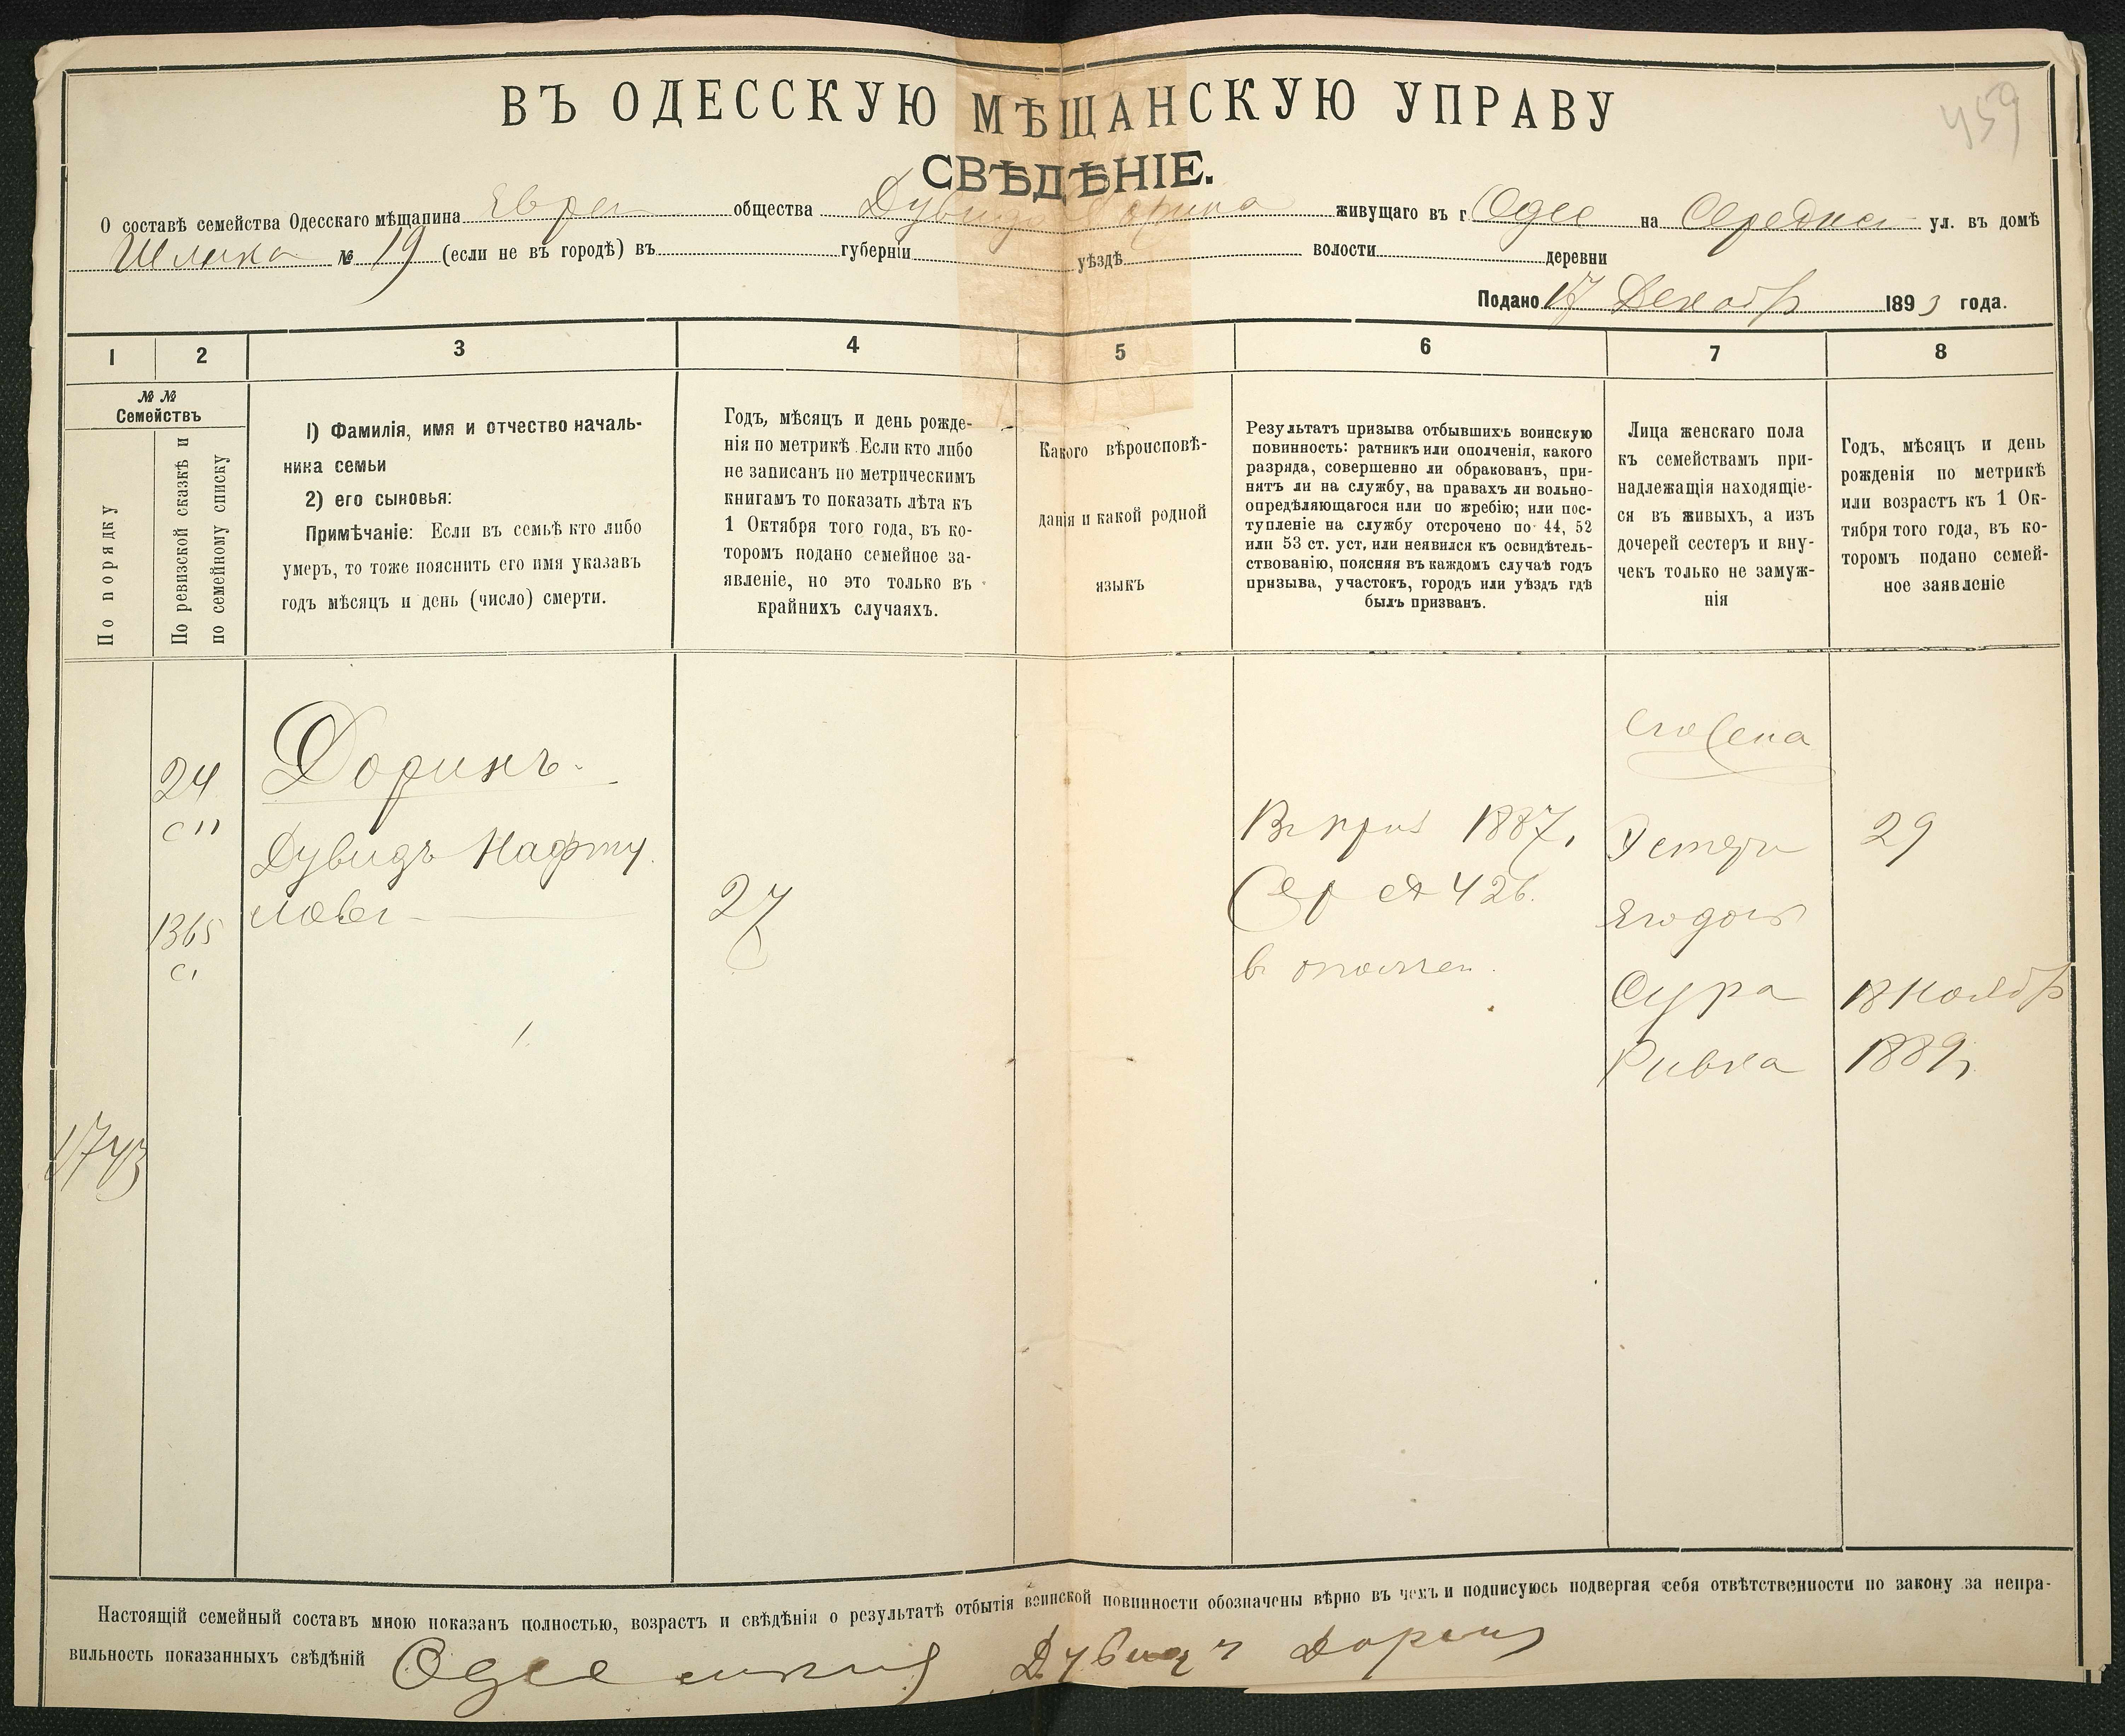 ВЪ ОДЕССКУЮ МѢЩАНСКУЮ УПРАВУ
459
СВѢДѢНІЕ.
О составѣ семейства Одесскаго мѣщанина Евреи общества Дувида Дорина живущаго въ г. Одес на Средней ул. въ домѣ
№ 19 (если не въ городѣ) въ губерніи уѣздѣ волости деревни
Подано 17 Декабр 1893 года.
1 2 3 4 5 6 7 8
№ № Семействъ
По порядку
По ревизской сказкѣ и
по семейному списку
1) Фамилія, имя и отчество началь-
ника семьи
2) его сыновья:
Примѣчаніе: Если въ семьѣ кто либо
умеръ, то тоже пояснить его имя указавъ
годъ мѣсяцъ и день (число) смерти.
Годъ, мѣсяцъ и день рожде-
нія по метрикѣ. Если кто либо
не записанъ по метрическимъ
книгамъ то показать лѣта къ
1 Октября того года, въ ко-
торомъ подано семейное за-
явленіе, но это только въ
крайнихъ случаяхъ.
Какого вѣроисповѣ-
данія и какой родной
языкъ
Результатъ призыва отбывшихъ воинскую
повинность: ратникъ или ополченія, какого
разряда, совершенно ли обракованъ, при-
нятъ ли на службу, на правахъ ли вольно-
опредѣляющагося или по жребію; или пос-
тупленіе на службу отсрочено по 44, 52
или 53 ст. уст, или неявился къ освидѣтель-
ствованію, поясняя въ каждомъ случаѣ годъ
призыва, участокъ, городъ или уѣздъ гдѣ
былъ призванъ.
Лица женскаго пола
къ семействамъ при-
надлежащія находящіе-
ся въ живыхъ, а изъ
дочерей сестеръ и вну-
чекъ только не замуж-
нія
Годъ, мѣсяцъ и день
рожденія по метрикѣ
или возрастъ къ 1 Ок-
тября того года, въ ко-
торомъ подано семей-
ное заявленіе
24
1365
1743
Доринъ
Дувидъ Нафту
левъ
27
1887
426
в ополчен
Его жена
Эстеръ
29
Сура
18 Ноябр
Ривка
1889
Настоящій семейный составъ мною показанъ полностью, возрастъ и свѣдѣнія о результатѣ отбытія воинской повинности обозначены вѣрно въ чемъ и подписуюсь подвергая себя отвѣтственности по закону за непра-
вильность показанныхъ свѣдѣній Дувидъ Доринъ